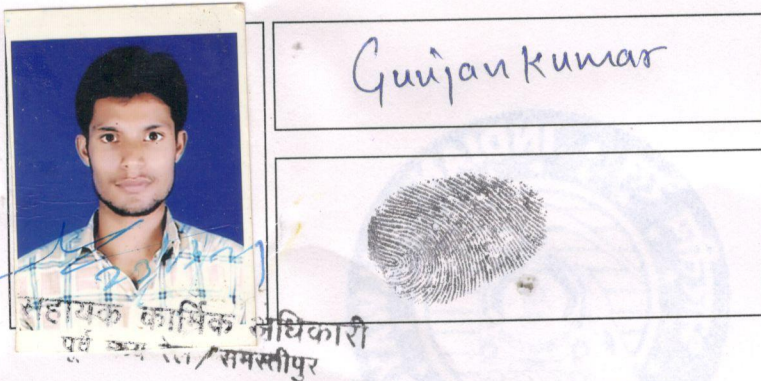 Gunjan Kumar
सहायक कार्मिक अधिकारी
पूर्व मध्य रेल/समस्तीपुर